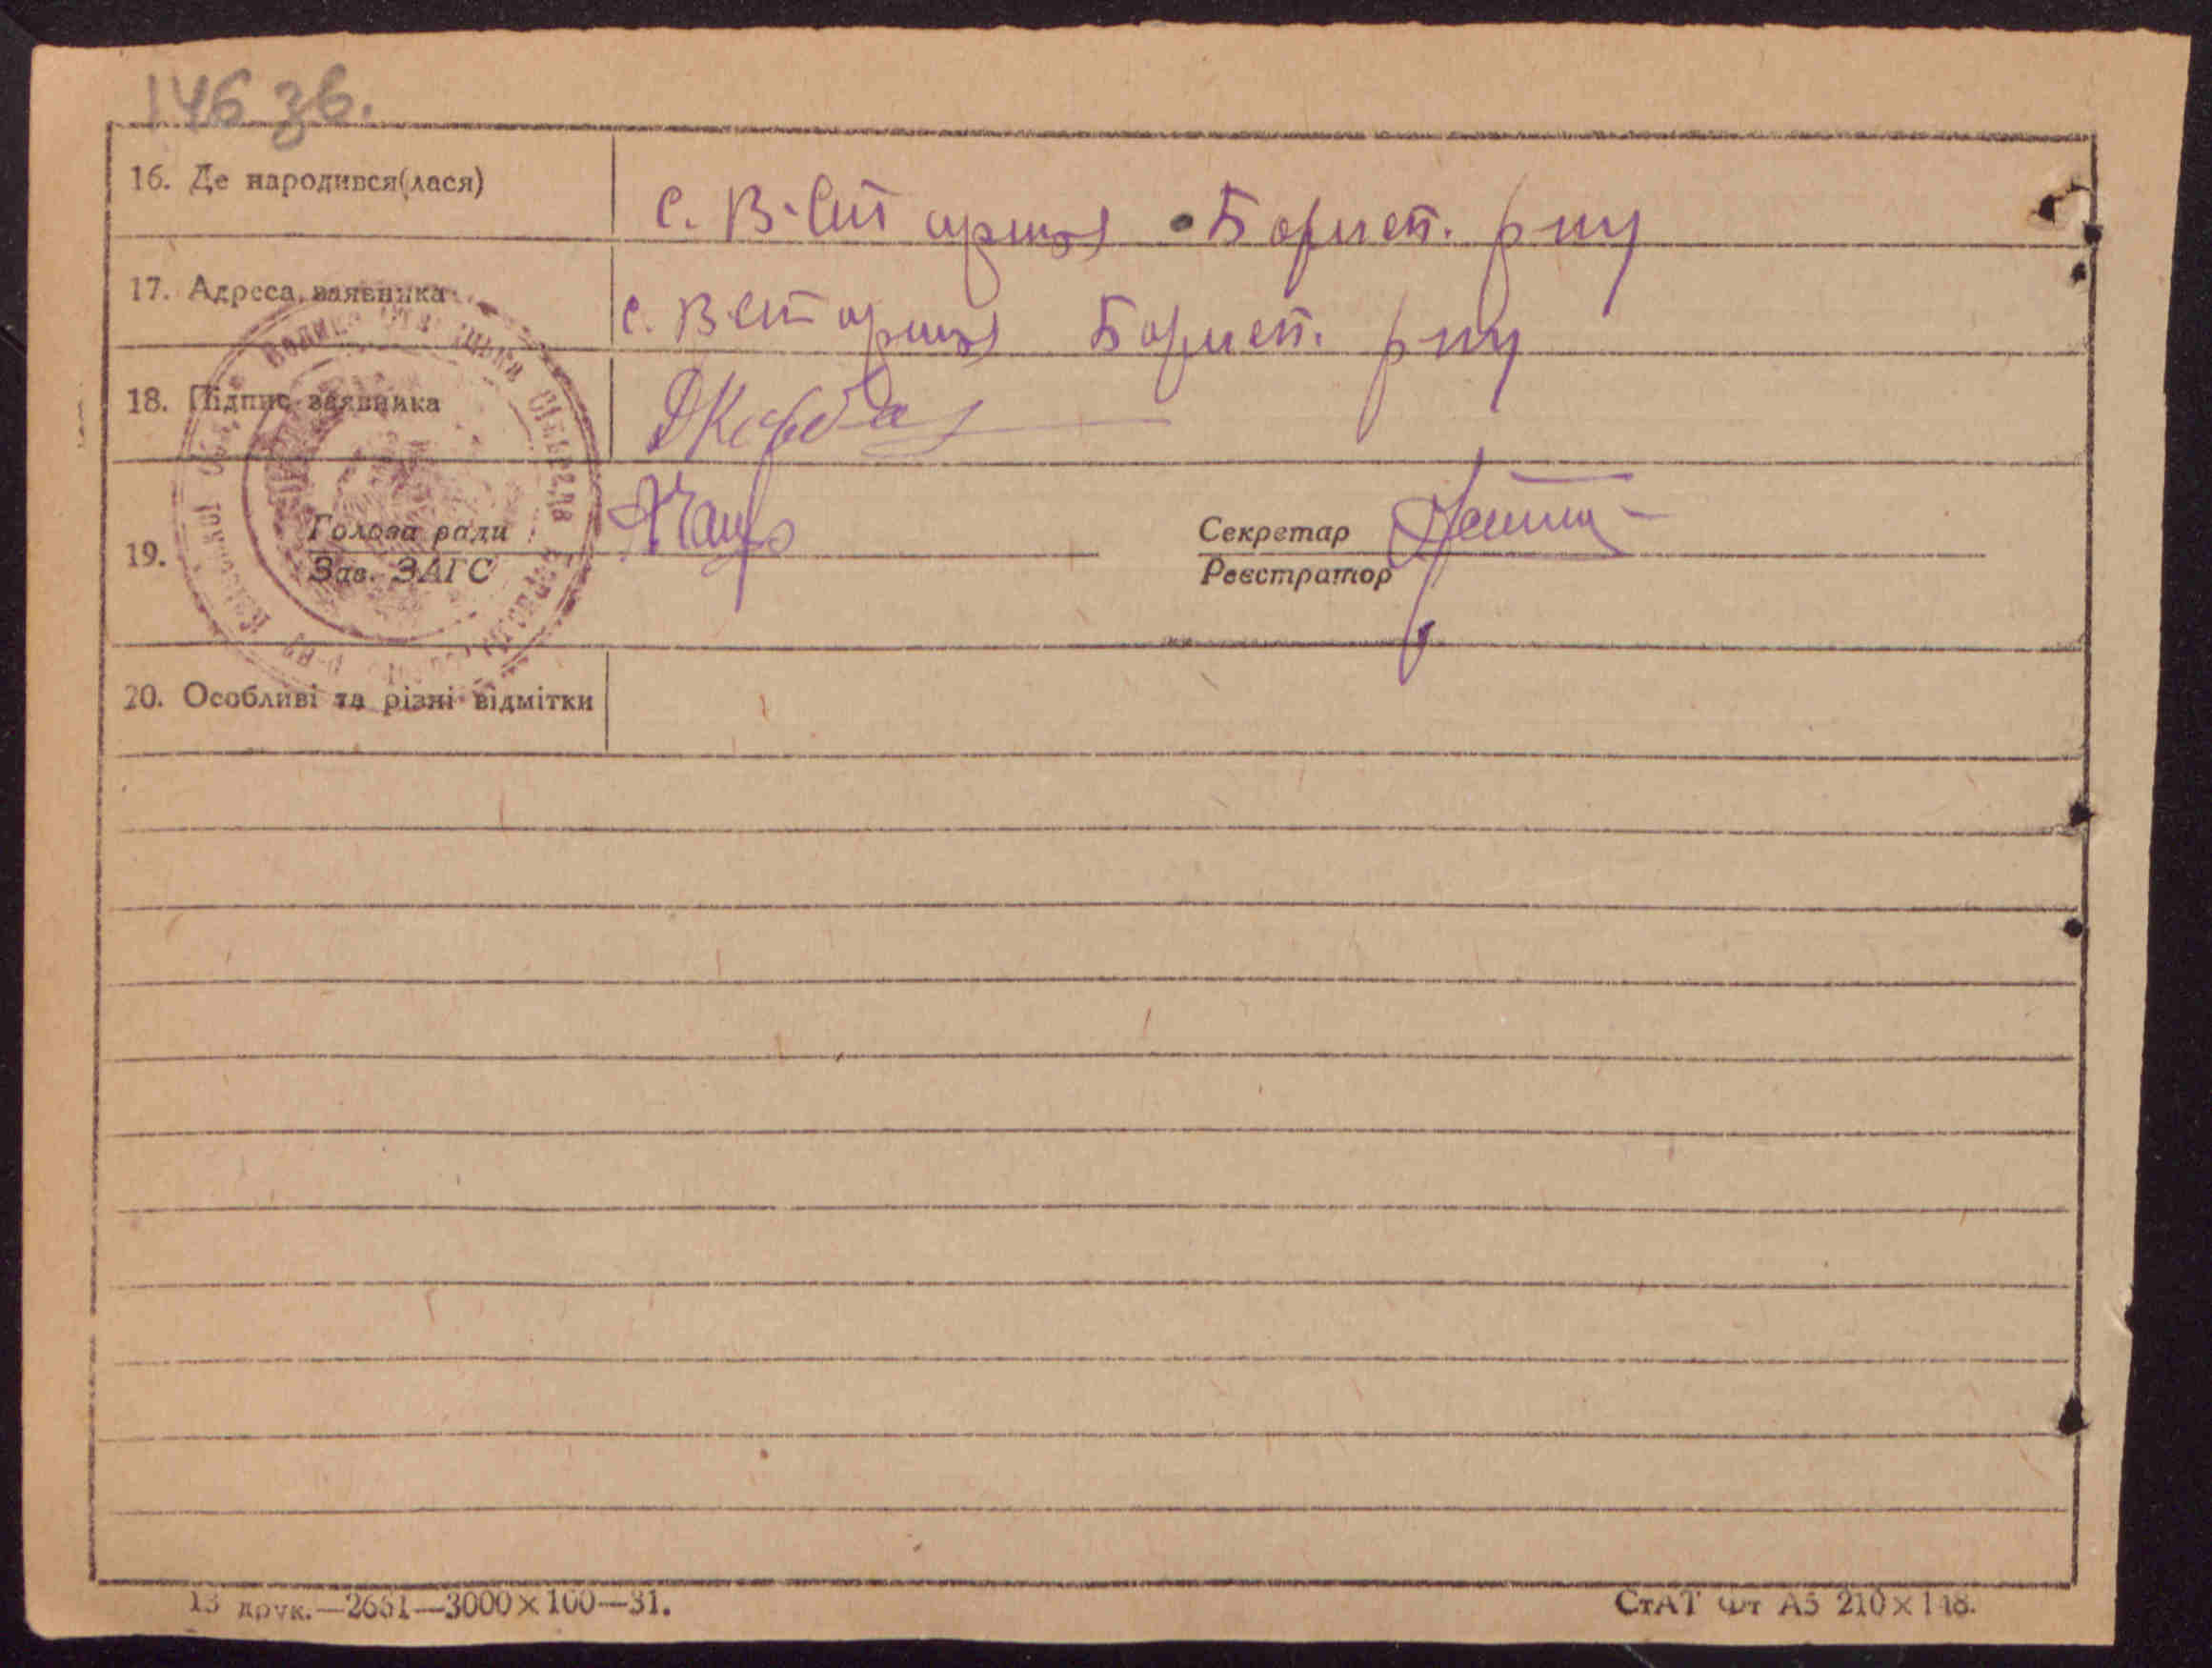 146 зв.
16. Де народився(лася)
с. В-Ст Борисп. р-ну
17. Адреса заявника
с. В Ст Борисп. р-ну
18. Підпис заявника
19. Голова ради
Зав. ЗАГС
Секретар
Реєстратор
20. Особливі та різні відмітки
13 друк.—2661—3000×100—31.
СтАТ Фт А5 210×148.